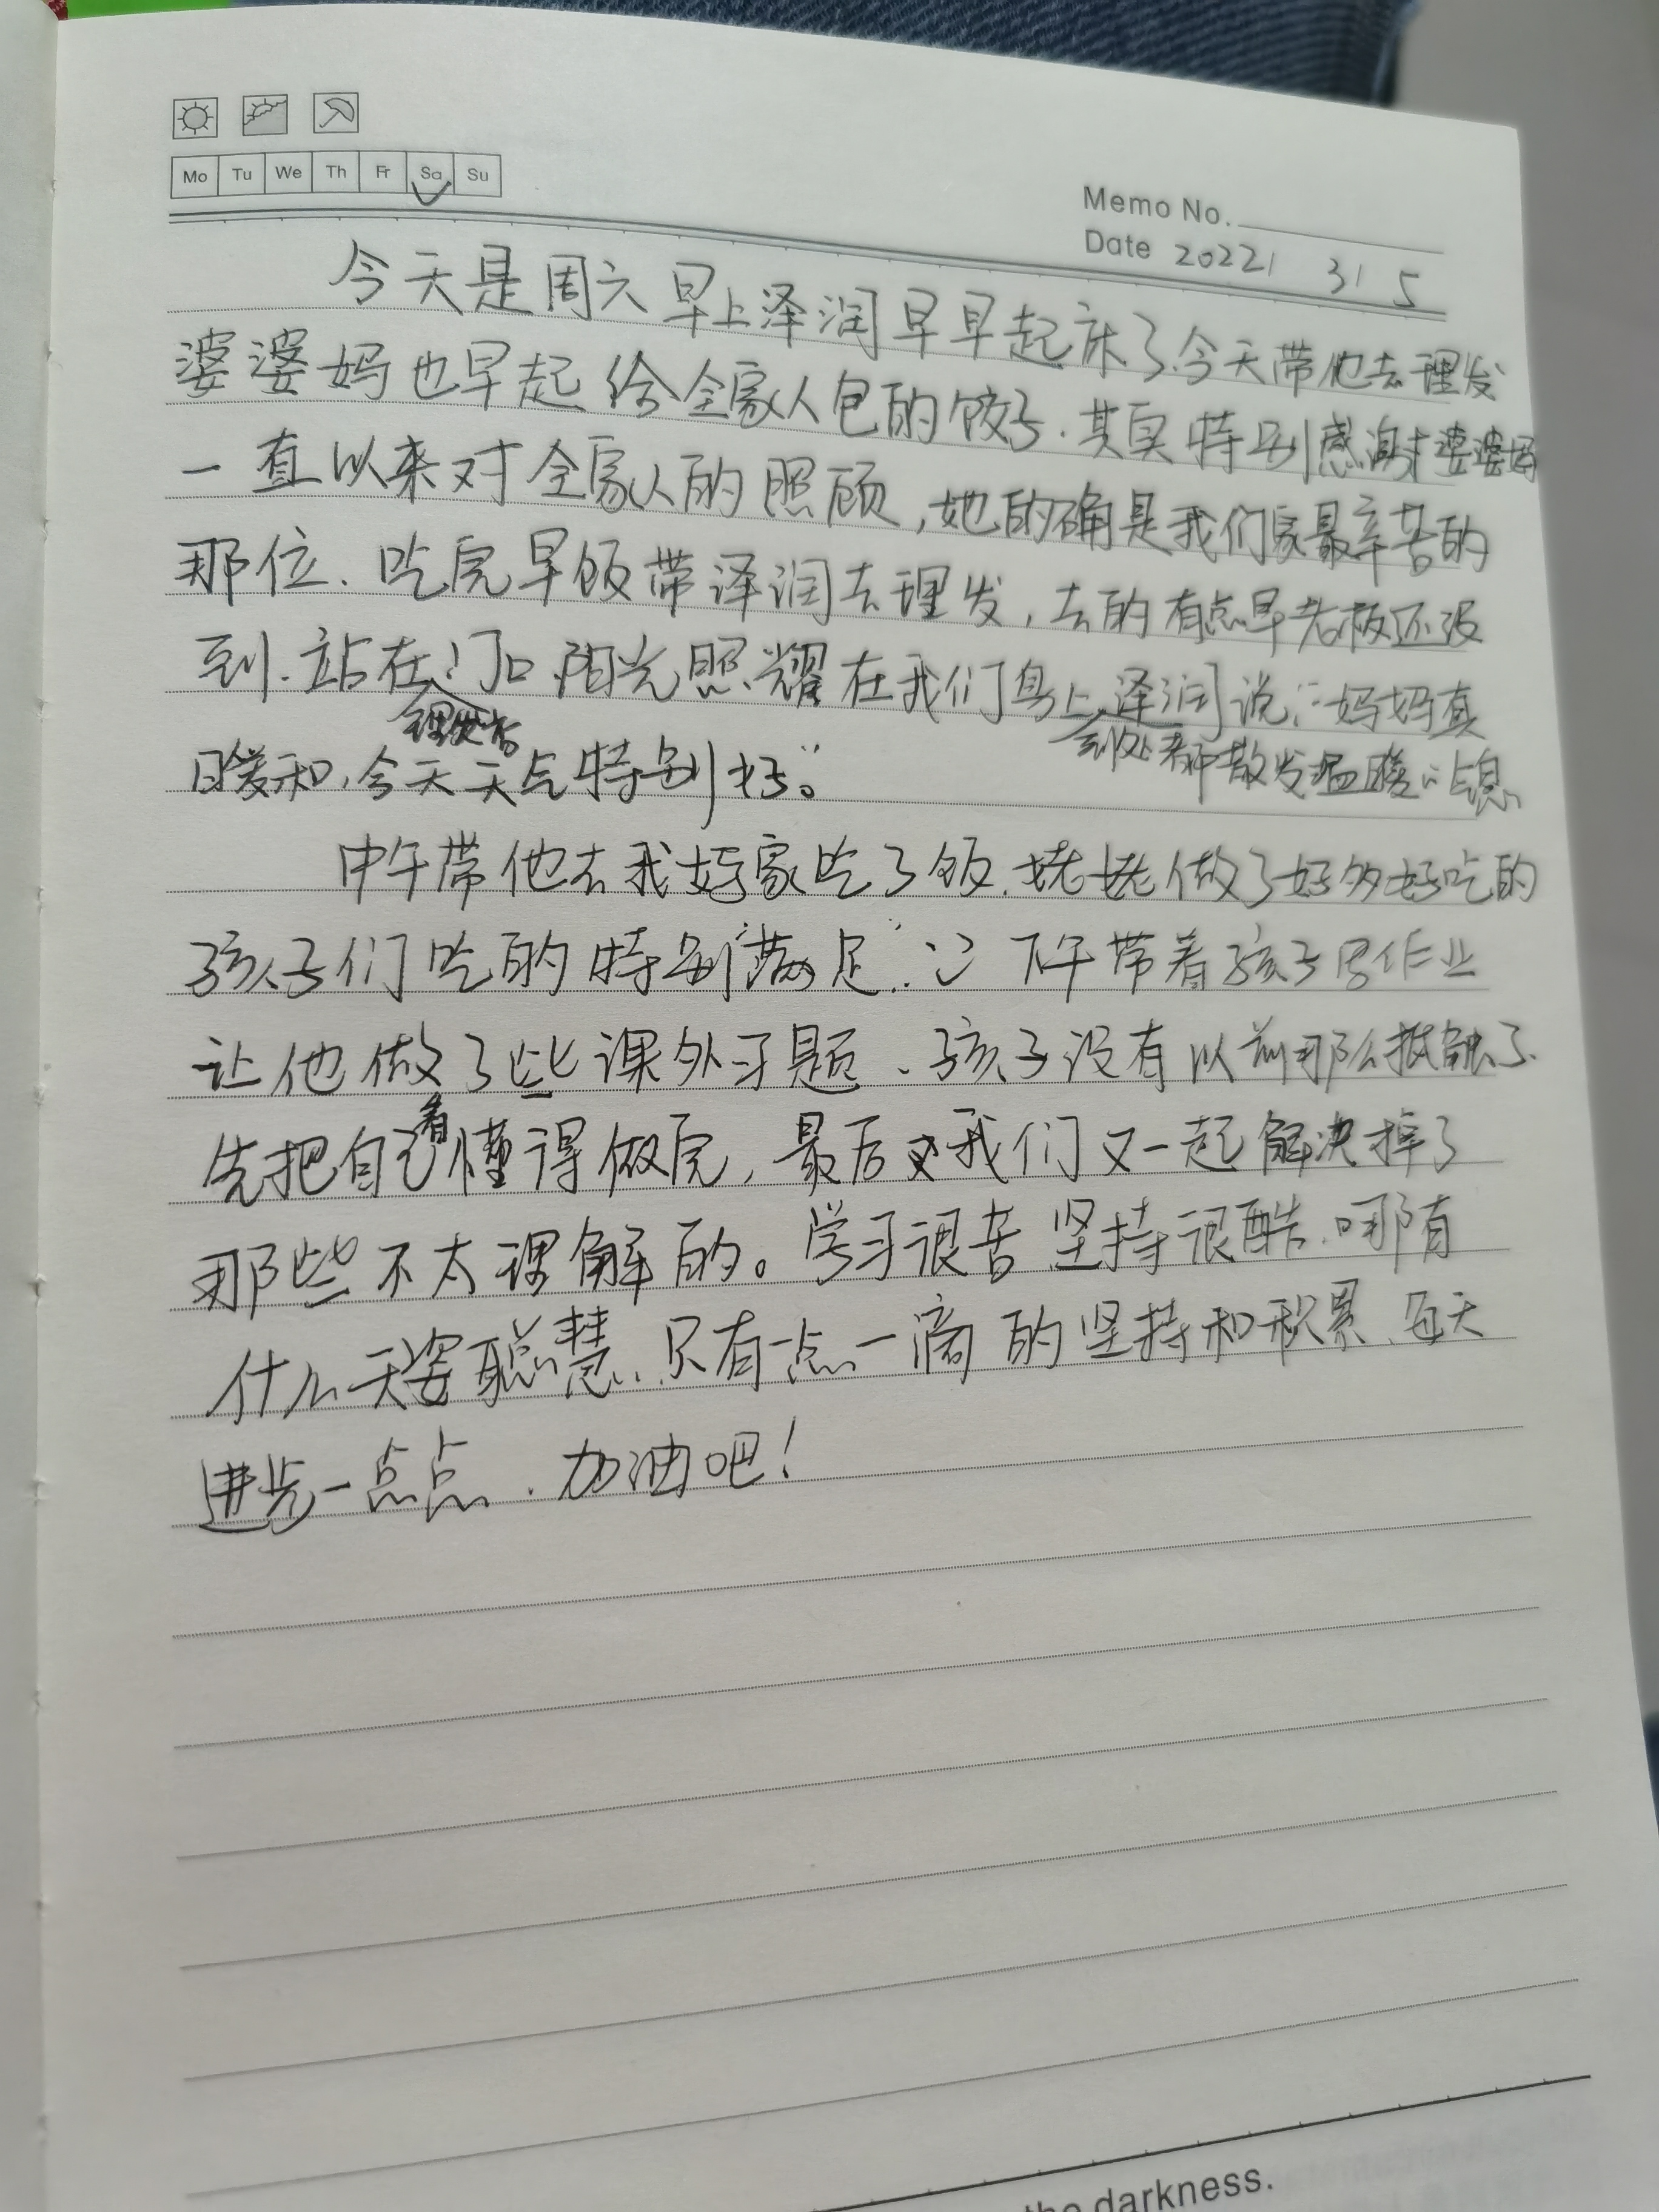 Mo Tu We Th Fr Sa Su
Memo No.
Date 2022/ 3/ 5
今天是周六早上泽润早早起床了.今天带他去理发
婆婆妈也早起给全家人包的饺子.其实特别感谢婆婆妈
一直以来对全家人的照顾,她的确是我们家最辛苦的
那位.吃完早饭带泽润去理发,去的有点早老板还没
到.站在门口.阳光照耀在我们身上.泽润说:"妈妈真
理发店
到处都散发温暖的气息
暖和,今天天气特别好。"
中午带他去我妈家吃了饭.姥姥做了好多好吃的
孩子们吃的特别"满足".下午带着孩子写作业
让他做了些课外习题.孩子没有以前那么抵触了.
看
先把自己懂得做完,最后我们又一起解决掉了
那些不太理解的。学习很苦坚持很酷.哪有
什么天姿聪慧.只有一点一滴的坚持和积累.每天
进步一点点.加油吧!
the darkness.